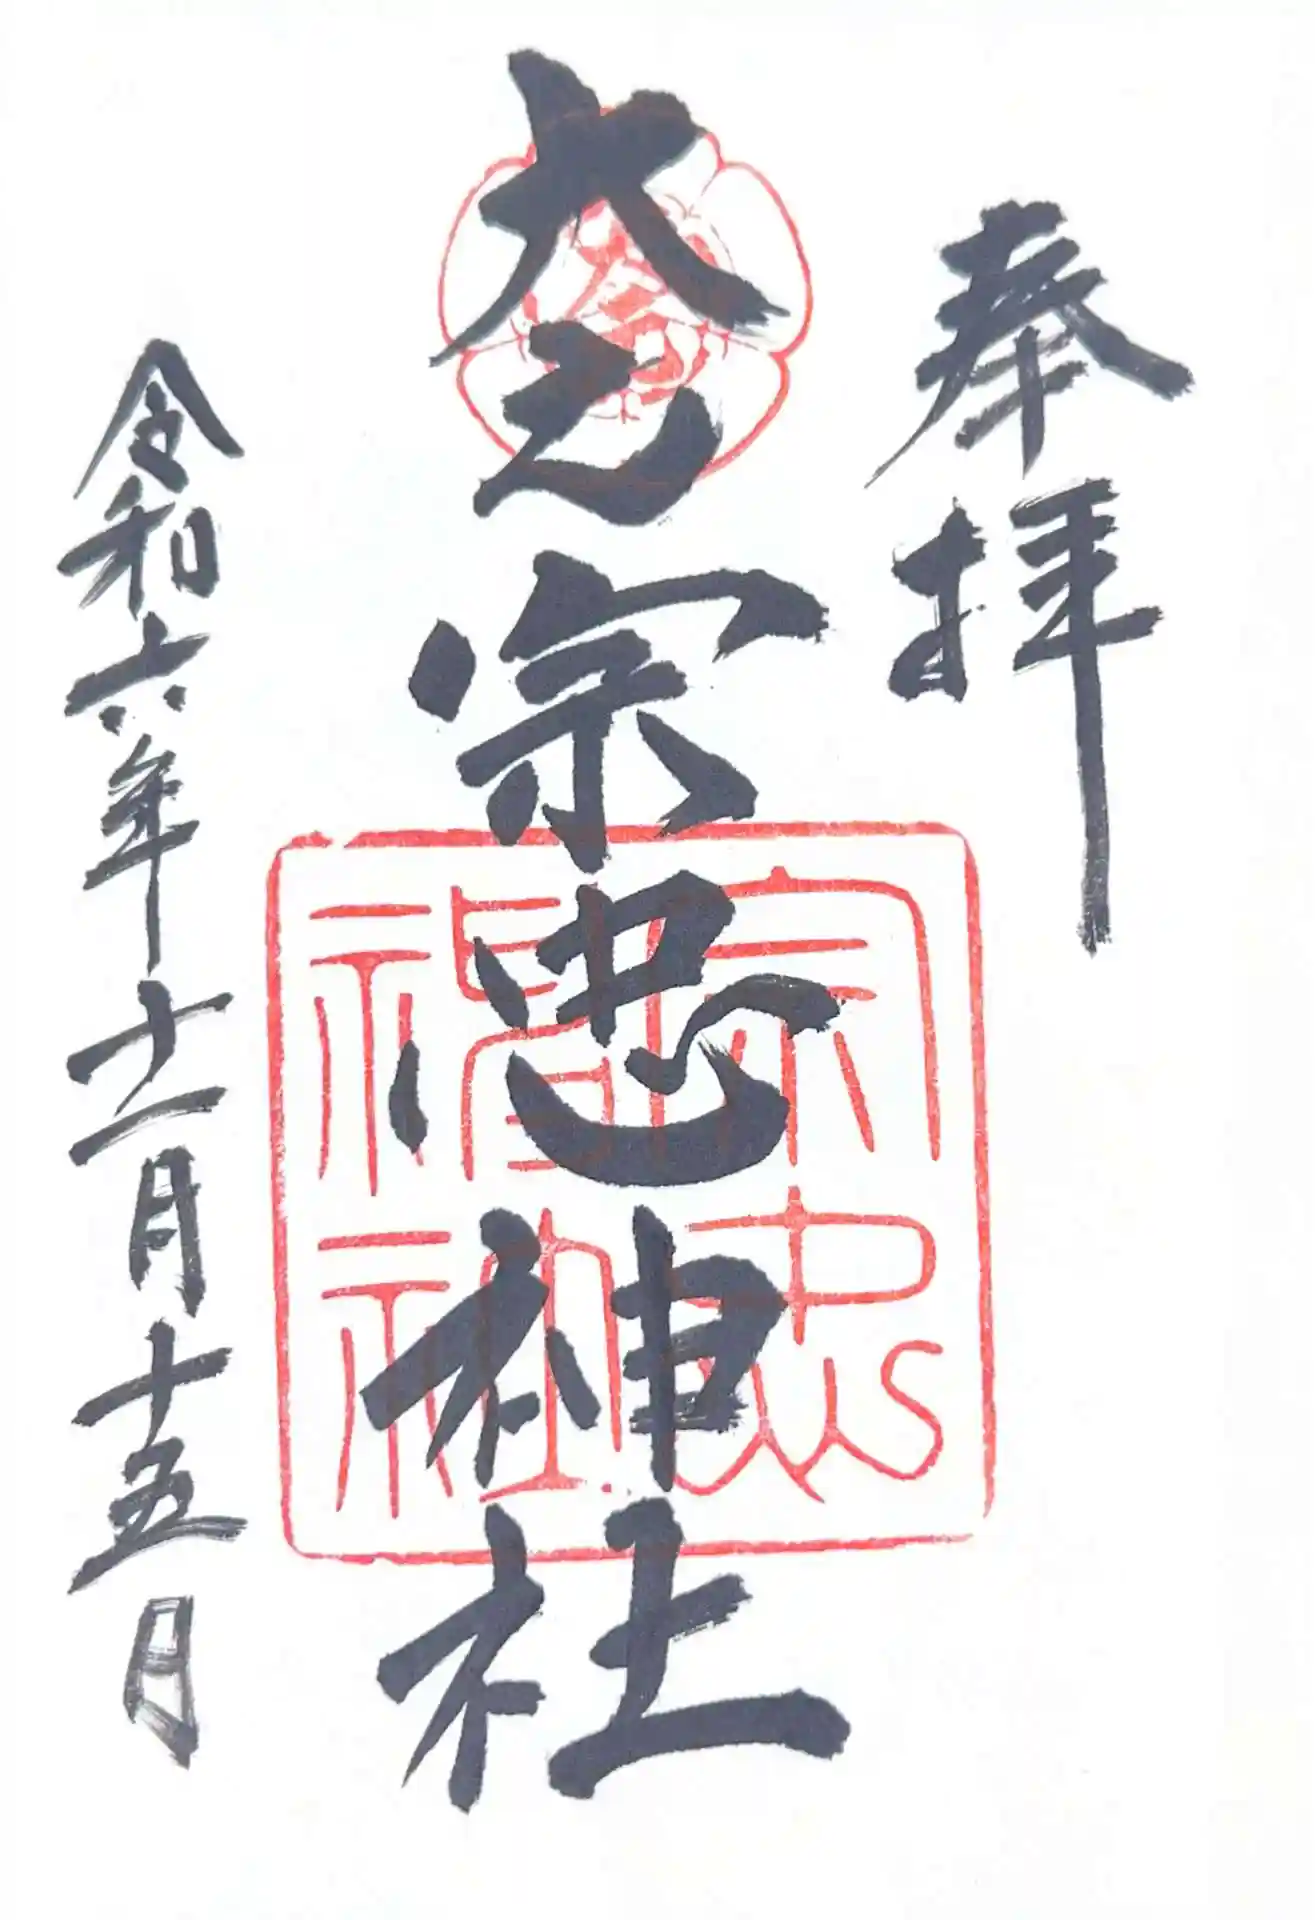 奉拝
大元宗忠神社
令和六年十一月十五日
宗忠
神社